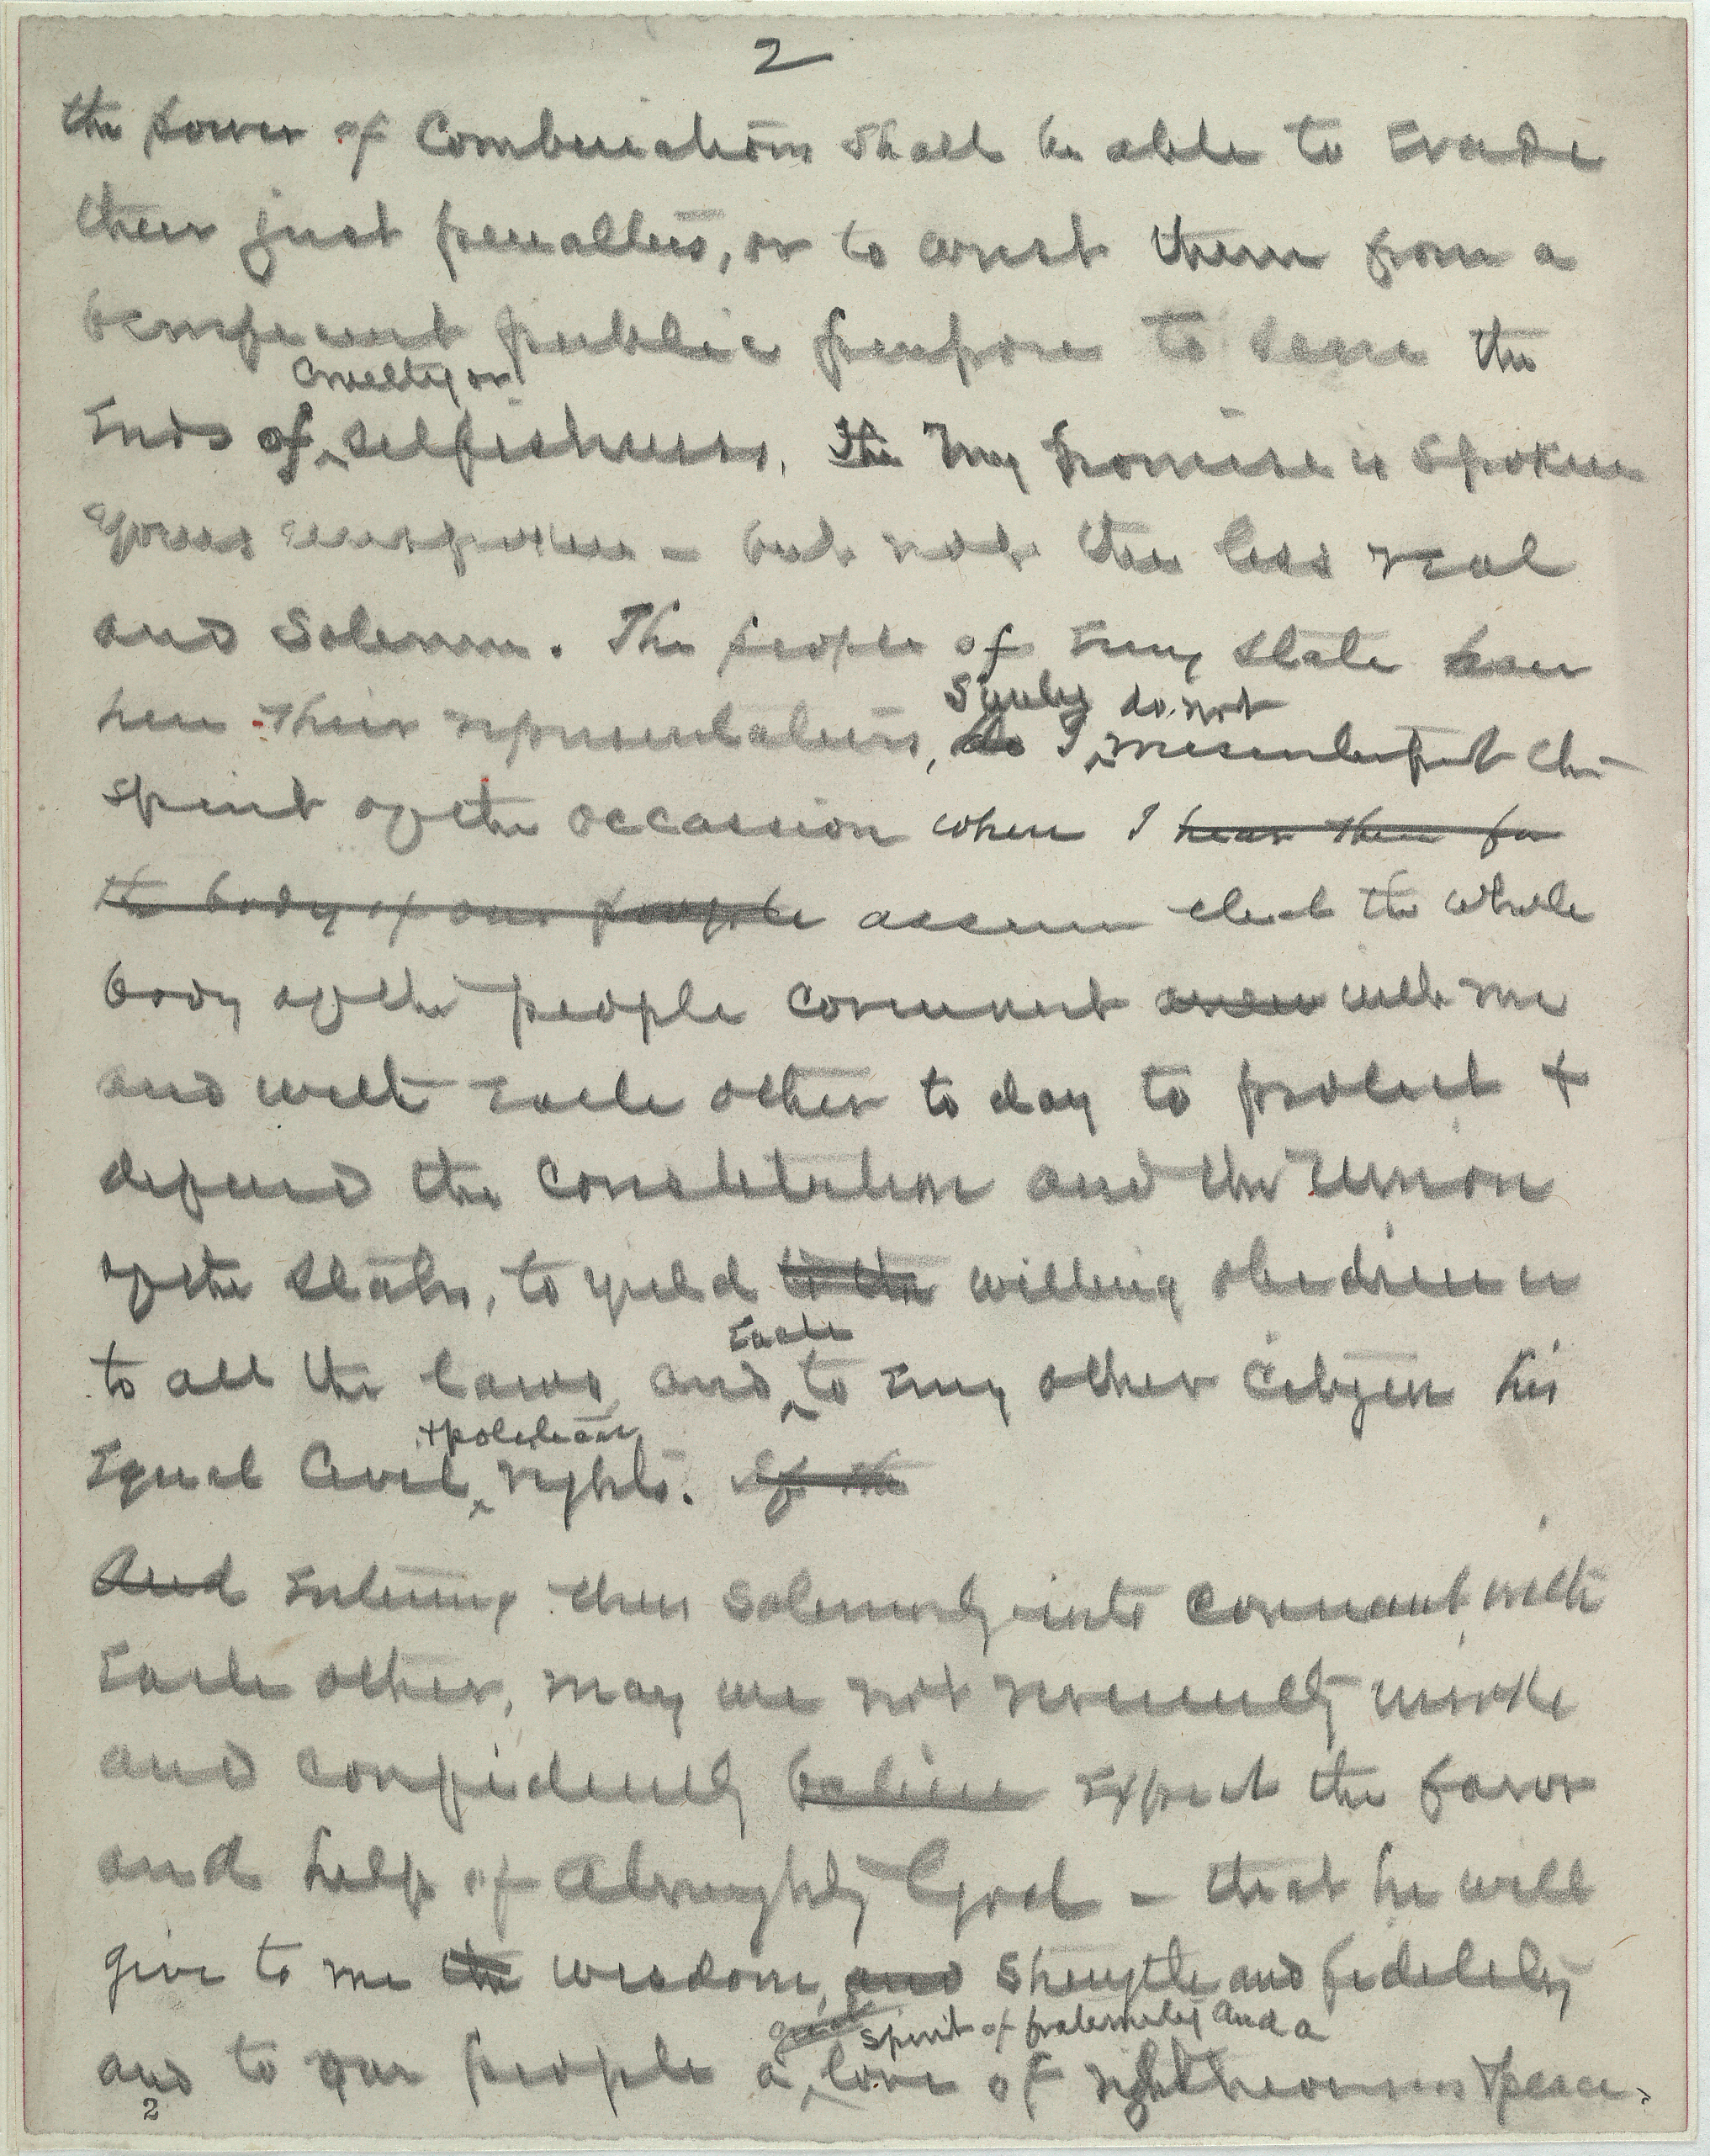 2
the power of Combinations shall be able to Evade
their just penalties, or to wrest them from a
beneficent public purpose to serve the
Cruelty or
Ends of ^ selfishness. The My Promise is spoken
yours unspoken - but not the less real
and Solemn. The people of Every State have
Surely do not
here their representatives, do I ^ misinterpret the
spirit of the occassion when I hear them for
the body of our people assume that the whole
body of the people covenant anew with me
and with Each other to day to protect +
defend the Constitution and the Union
of the States, to yield to the willing obedience
Each
to all the laws and ^ to Every other Citizen his
+ political
Equal Civil ^ rights. If the
And Entering thus Solemnly into Covenant with
Each other, may we not reverently invoke
and confidently believe Expect the favor
and help of Almighty God - that he will
give to me the wisdom, and strength and fidelity
great spirit of fraternity and a
and to our people a ^ love of righteousness & peace.
2